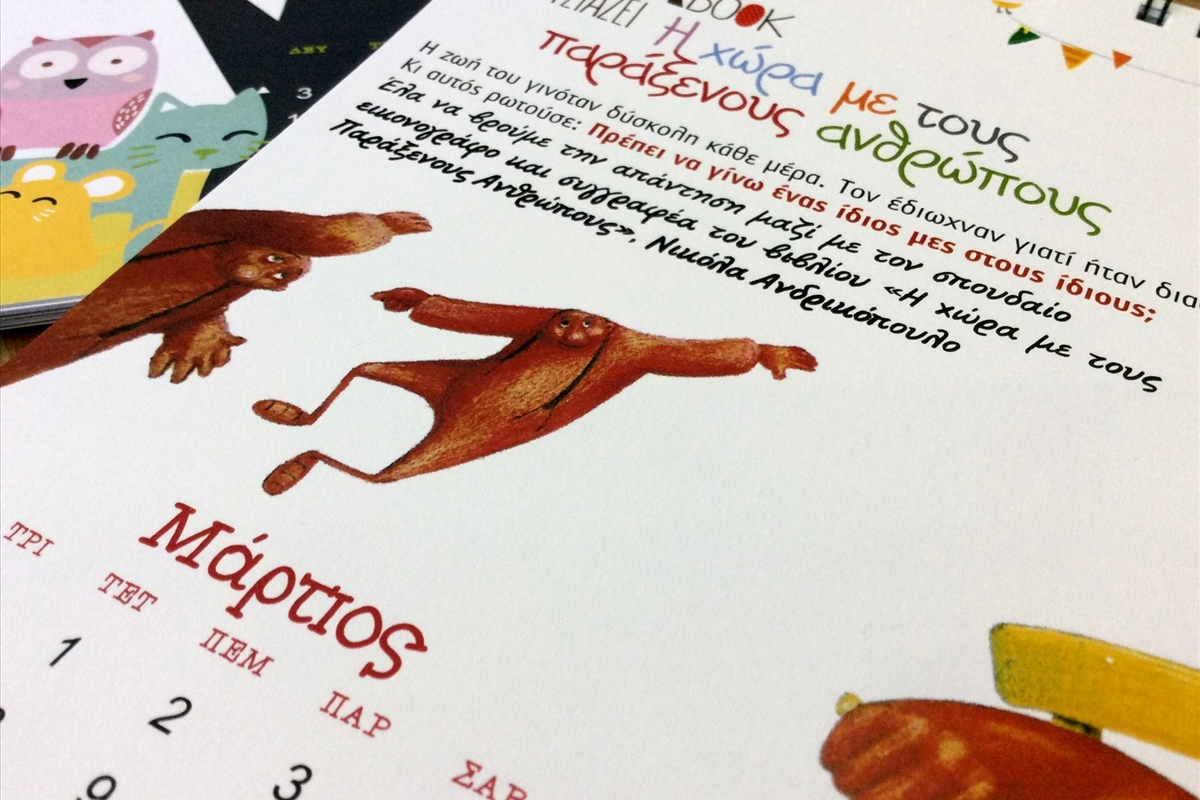 BOOK
Η χώρα με τους
παράξενους ανθρώπους
Η ζωή του γινόταν δύσκολη κάθε μέρα. Τον έδιωχναν γιατί ήταν
Κι αυτός ρωτούσε: Πρέπει να γίνω ένας ίδιος μες στους ίδιους;
Έλα να βρούμε την απάντηση μαζί με τον σπουδαίο
εικονογράφο και συγγραφέα του βιβλίου «Η χώρα με τους
Παράξενους Ανθρώπους», Νικόλα Ανδρικόπουλο
ΔΕΥ
3
Μάρτιος
ΤΡΙ ΤΕΤ ΠΕΜ ΠΑΡ ΣΑΒ
1 2 3
9